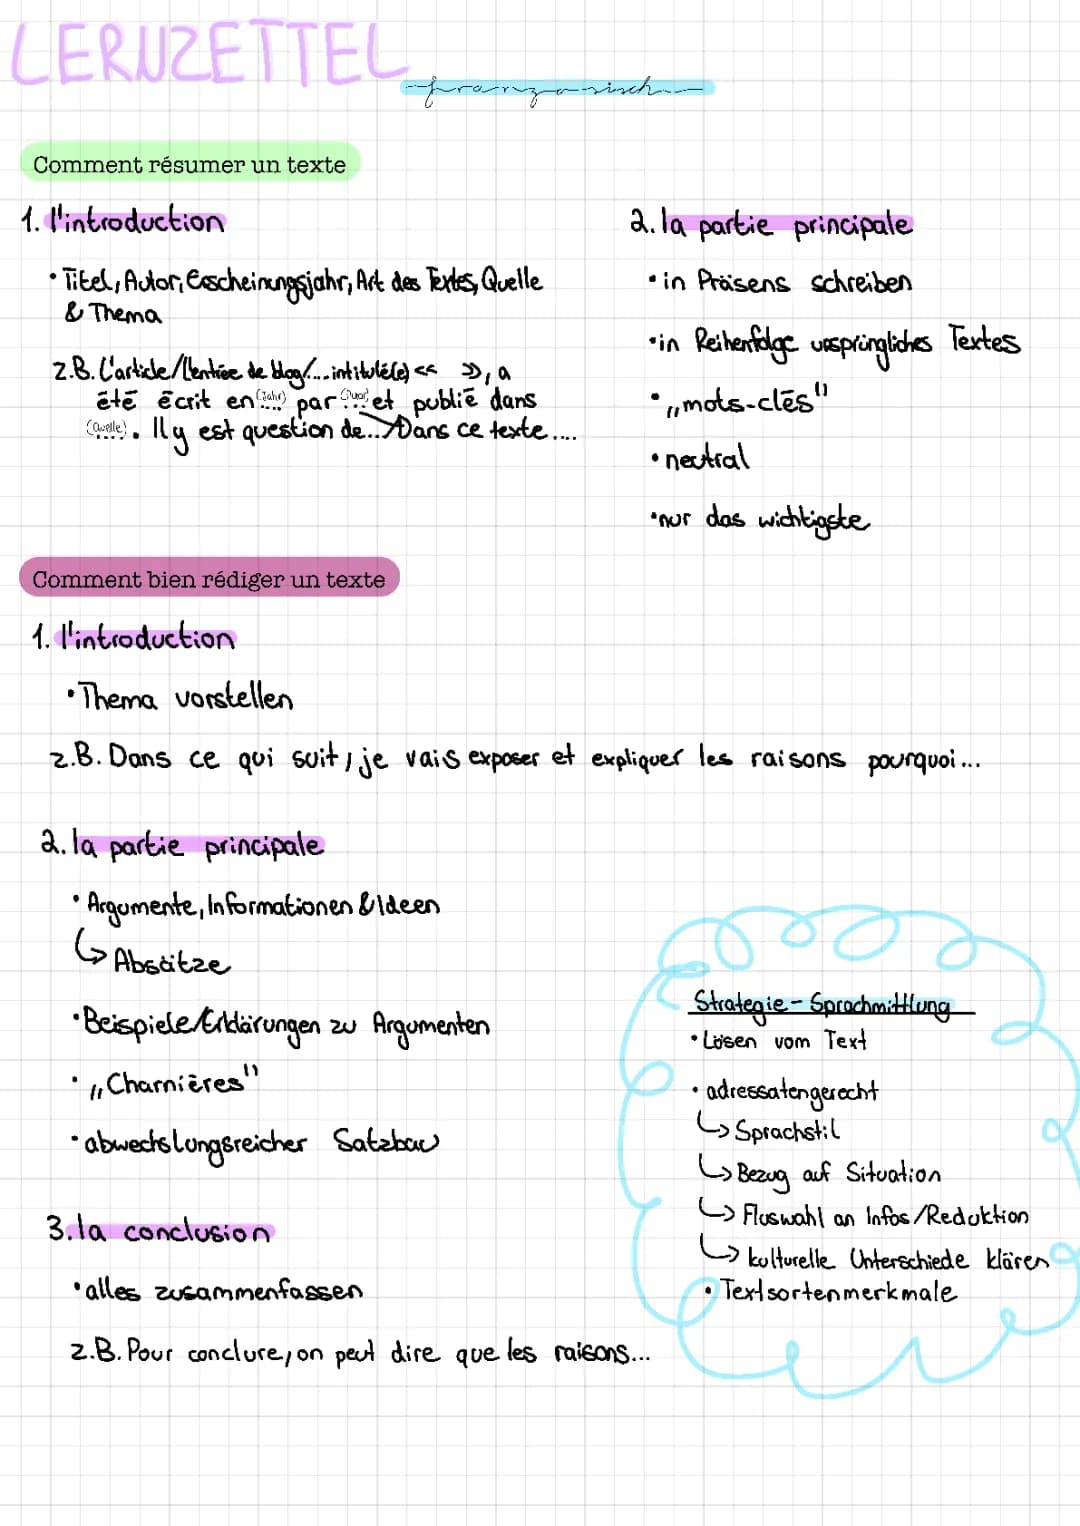 LERNZETTEL
französisch
Comment résumer un texte
1. l'introduction
• Titel, Autor, Erscheinungsjahr, Art des Textes, Quelle
& Thema
z.B. L'article/L'entrée de blog/... intitulé(e) << >>, a
été écrit en (Jahr) par ... et publié dans
(Quelle). Il y est question de.../Dans ce texte....
2. la partie principale
• in Präsens schreiben
• in Reihenfolge ursprüngliches Textes
• „mots-clés"
• neutral
• nur das wichtigste
Comment bien rédiger un texte
1. l'introduction
• Thema vorstellen
z.B. Dans ce qui suit, je vais exposer et expliquer les raisons pourquoi...
2. la partie principale
• Argumente, Informationen & Ideen
↳ Absätze
• Beispiele/Erklärungen zu Argumenten
• „Charnières"
• abwechslungsreicher Satzbau
3. la conclusion
• alles zusammenfassen
z.B. Pour conclure, on peut dire que les raisons...
Strategie - Sprachmittlung
• Lösen vom Text
• adressatengerecht
↳ Sprachstil
↳ Bezug auf Situation
↳ Auswahl an Infos/Reduktion
↳ kulturelle Unterschiede klären
• Textsortenmerkmale